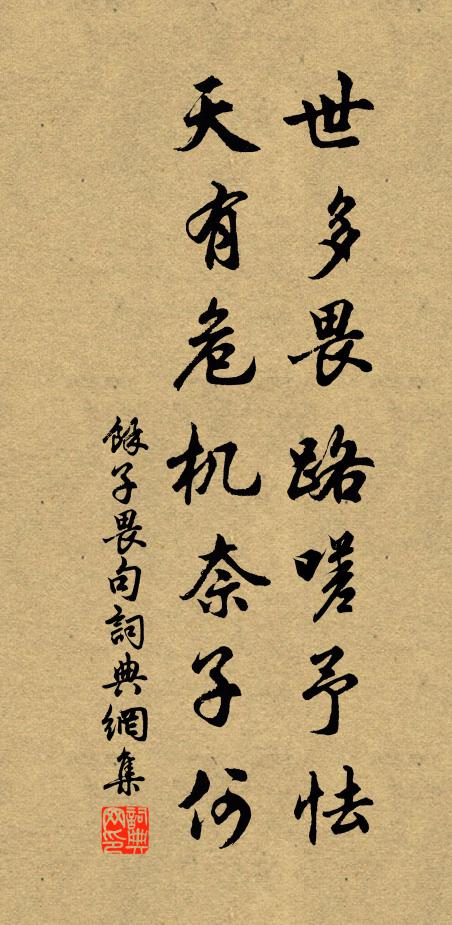 世多畏路嗟予怯
天有危机奈子何
餘子畏句詞典網集
詞典网印